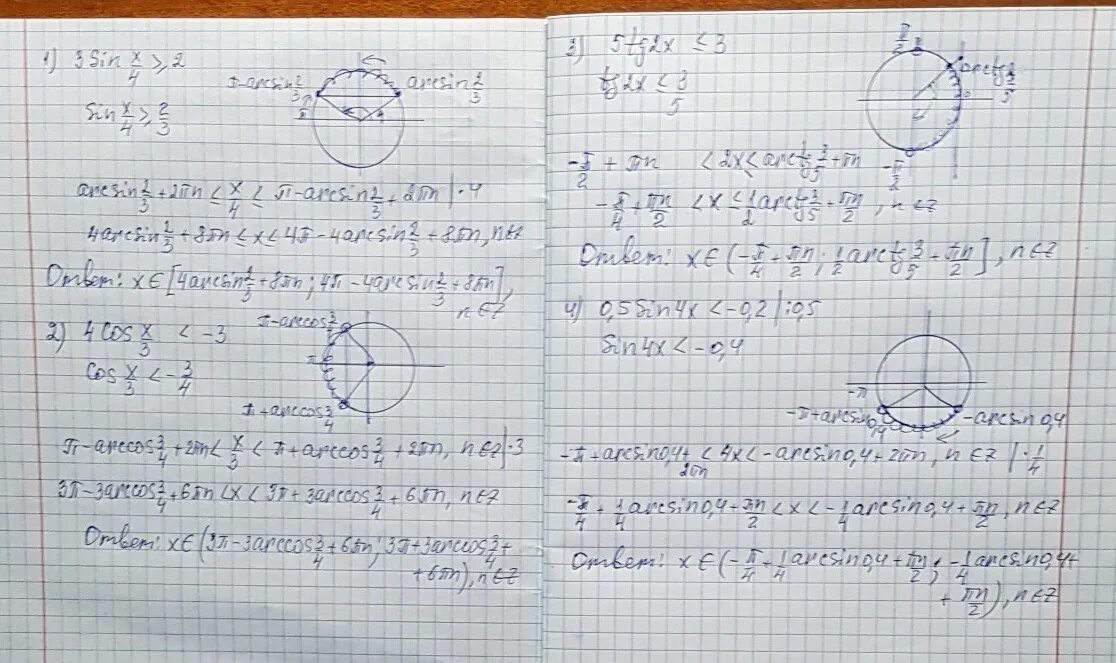 1) 3sin x/4 ≥ 2
π-arcsin 2/3
arcsin 2/3
π
sin x/4 ≥ 2/3
arcsin 2/3 + 2πn ≤ x/4 ≤ π-arcsin 2/3 + 2πn |·4
4arcsin 2/3 + 8πn ≤ x ≤ 4π-4arcsin 2/3 + 8πn, n∈Z
Ответ: x∈[4arcsin 2/3 + 8πn; 4π-4arcsin 2/3 + 8πn],
n∈Z
2) 4cos x/3 < -3
π-arccos 3/4
π
cos x/3 < -3/4
π+arccos 3/4
π-arccos 3/4 + 2πn < x/3 < π+arccos 3/4 + 2πn, n∈Z |·3
3π-3arccos 3/4 + 6πn < x < 3π+3arccos 3/4 + 6πn, n∈Z
Ответ: x∈(3π-3arccos 3/4 + 6πn; 3π+3arccos 3/4 +
+6πn), n∈Z
3) 5tg2x ≤ 3
π/2
arctg 3/5
tg2x ≤ 3/5
-π/2
-π/2 + πn < 2x ≤ arctg 3/5 + πn
-π/4 + πn/2 < x ≤ 1/2 arctg 3/5 + πn/2, n∈Z
Ответ: x∈(-π/4 + πn/2; 1/2 arctg 3/5 + πn/2], n∈Z
4) 0,5sin4x < -0,2 |:0,5
sin4x < -0,4
-π
-π+arcsin0,4
-arcsin0,4
-π+arcsin0,4+2πn < 4x < -arcsin0,4+2πn, n∈Z |·1/4
-π/4 + 1/4 arcsin0,4 + πn/2 < x < -1/4 arcsin0,4 + πn/2, n∈Z
Ответ: x∈(-π/4 + 1/4 arcsin0,4 + πn/2; -1/4 arcsin0,4 +
+ πn/2), n∈Z